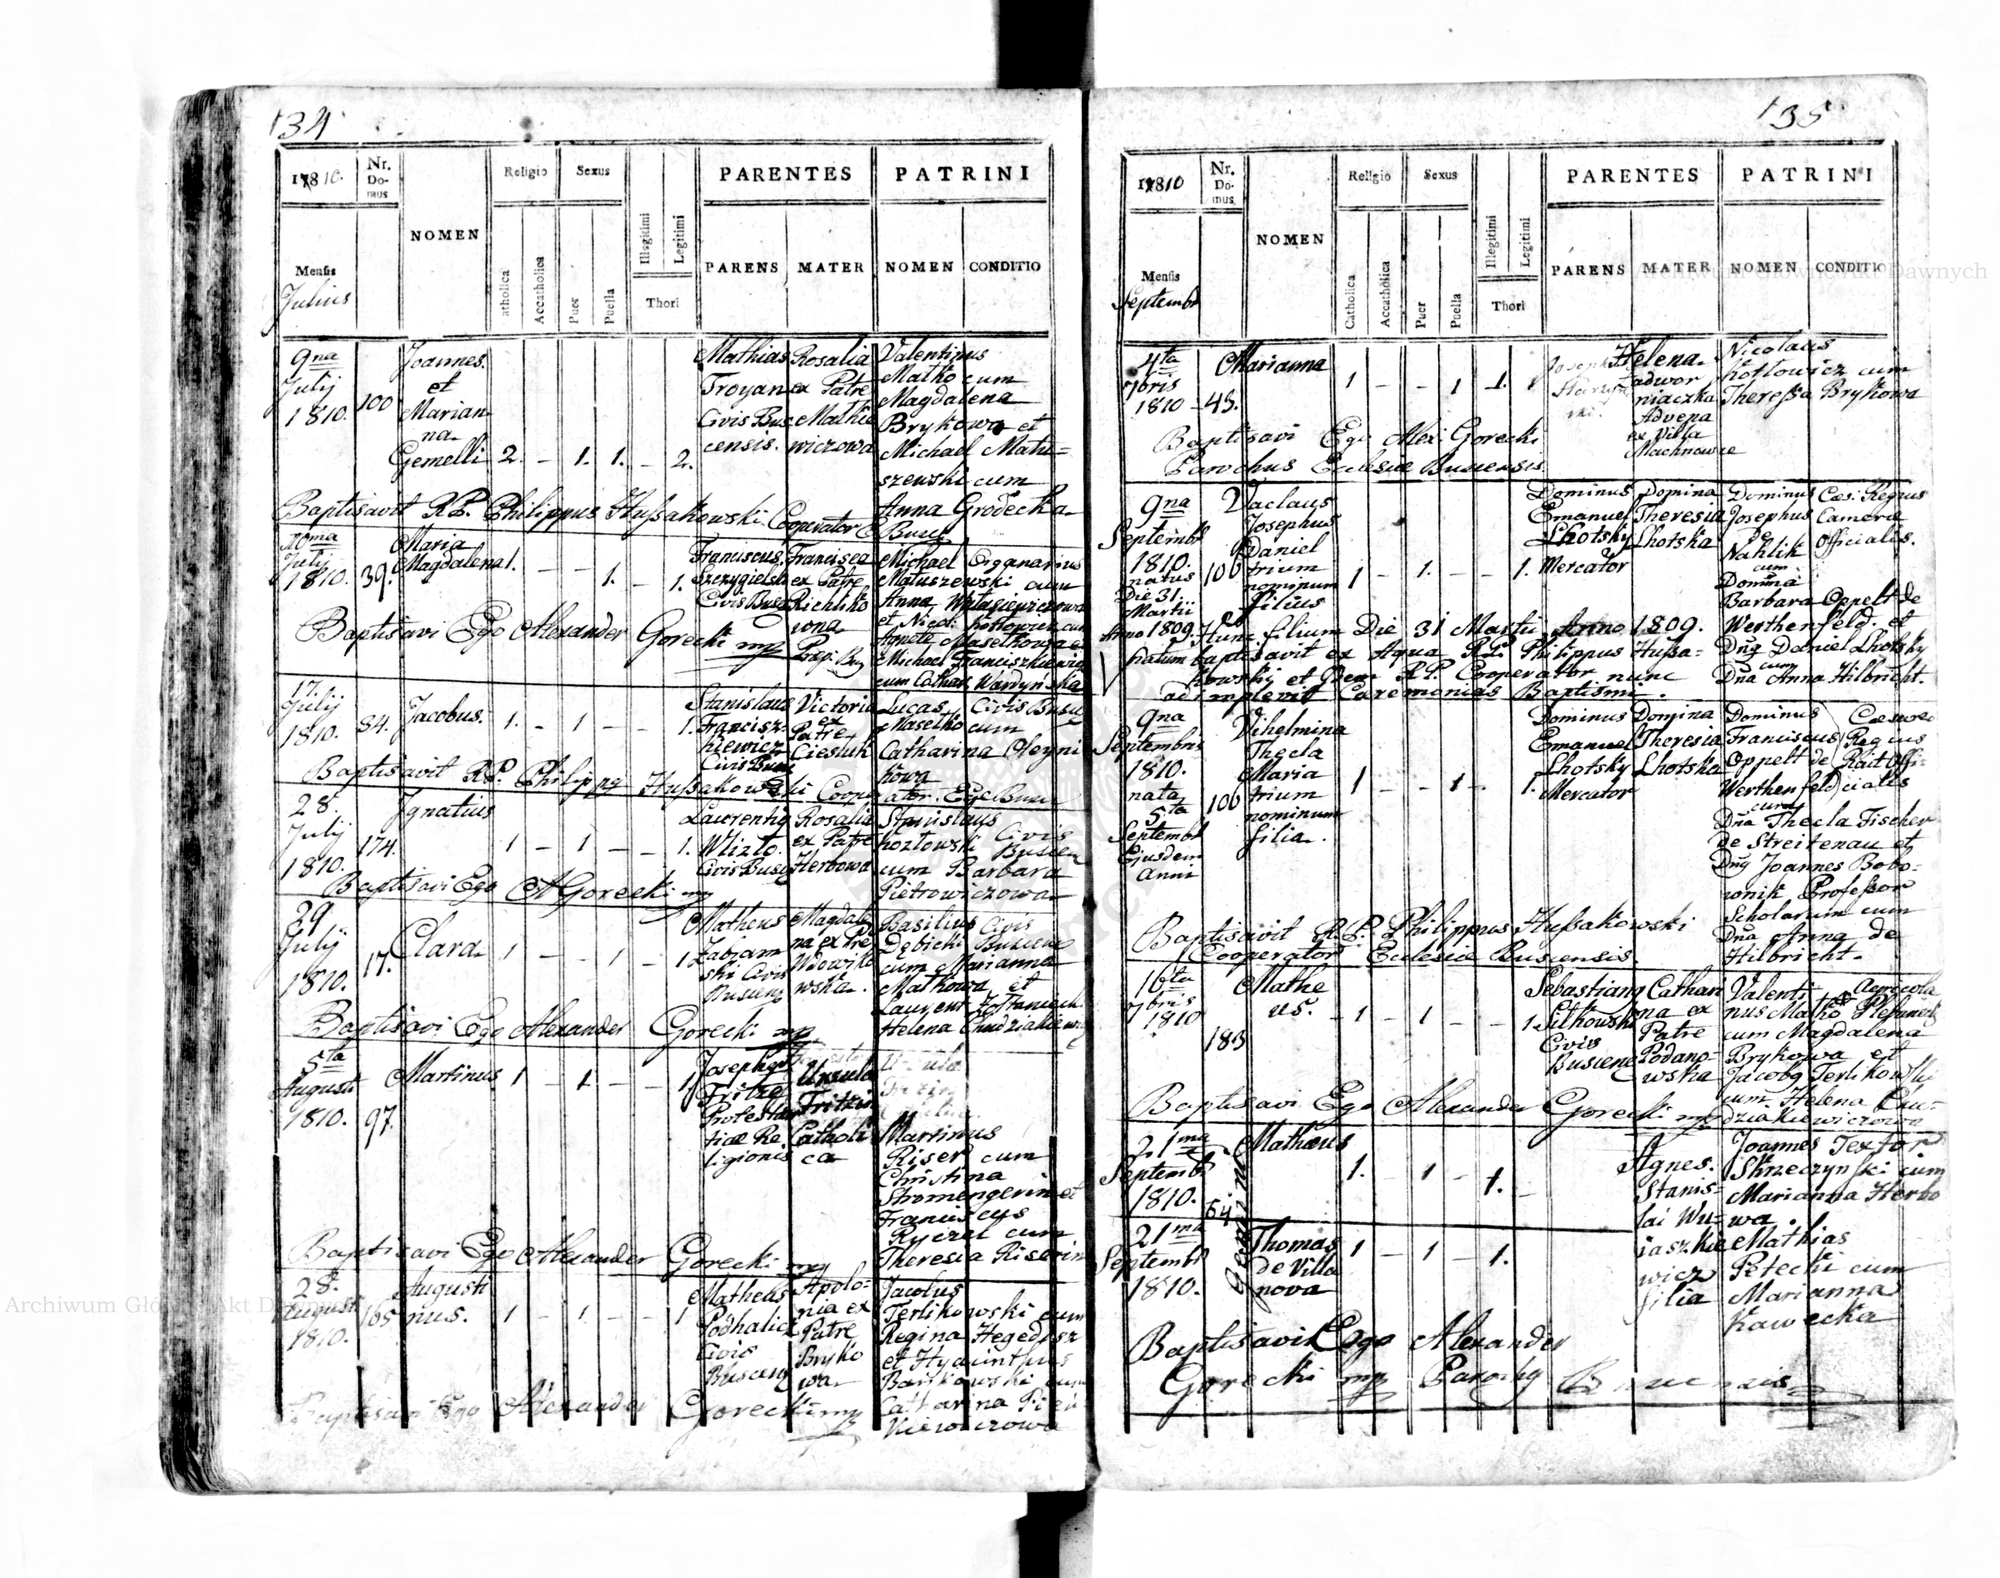 134
1810.
Nr. Domus
NOMEN
Religio
Sexus
PARENTES
PATRINI
Mensis
Julius
Catholica
Accatholica
Puer
Puella
Illegitimi
Legitimi
Thori
PARENS
MATER
NOMEN
CONDITIO
9na July 1810.
100
Joannes.
et
Marian
na
Gemelli
2. – 1. 1. – 2.
Mathias
Troyan
Civis Bus
censis.
Rosalia
ex Patre
Mathia
wiczowa
Valentinus
Matko cum
Magdalena
Brykowa et
Michael Matu=
szewski cum
Anna Grodecka
Baptisavit R.P. Philippus Hussakowski Cooperator E. Busc
10ma July 1810.
39.
Maria
Magdalena
1. – – 1. – 1.
Franciscus
Szczygielski
Civis Busc
Francisca
ex Patre
Richliko
wna
Michael Organarius
Matuszewski cum
Anna
et Nicol: Kotlowicz cum
Agnete
Michael Franciszkiewicz
cum Cathar. Wardynska
Baptisavi Ego Alexander Gorecki mp
17. July 1810.
84.
Jacobus.
1. – 1 – – 1.
Stanislaus
Francisz
kiewicz
Civis Busc
Victoria
ex
Patre
Ciesluk
Lucas Civis Busc
Maselko cum
Catharina Heyni
kowa
Baptisavit R.P. Philippq Hussakowski Cooperator Ecc Busc
28. July 1810.
174.
Ignatius
1 – 1 – – 1.
Lawrentiq
Wlizlo.
Civis Busc
Rosalia
ex Patre
Herbowa
Stanislaus
Kozlowski Civis Buscen
cum Barbara
Pietrowiczowa
Baptisavi Ego AGorecki mp
29 July 1810.
17.
Clara
1 – – 1 – 1
Matheus
Zabram
ski Civis
Buscens
Magdale
na ex Pre
Wdowiko
wska.
Basilius Civis
Debicki Buscens
cum Marianna
Matkowa et
Laurent
Helena Chudziakiewicz
Baptisavi Ego Alexander Gorecki mp
5ta Augusti 1810.
97.
Martinus
1 – 1 – – 1
Josephq
Fritze
Protestan
tiae Re
ligionis
Ursula
Fritzin
Catholi
ca
Martinus
Riser cum
Christina
Stromengerin et
Franciscus
Ryczel cum
Theresia Riserin
Baptisavi Ego Alexander Gorecki mp
28. Augusti 1810.
165
Augusti
nus.
1 – 1 – – 1
Matheus
Podhalicz
Civis
Buscens
Apolo=
nia ex
Patre
Bryko
wa
Jacobus
Terlikowski cum
Regina Hegedisz
et Hyacinthus
Bankowski cum
Catharina
kiewiczowa
Baptisavi Ego Alexander Gorecki mp
135
1810
Nr. Domus
NOMEN
Religio
Sexus
PARENTES
PATRINI
Mensis
Septembr
Catholica
Accatholica
Puer
Puella
Illegitimi
Legitimi
Thori
PARENS
MATER
NOMEN
CONDITIO
4ta 7bris 1810
43.
Marianna
1 – – 1 1.
Helena
Zadwor
niaczka
Advena
ex Villa
Machnowce
Nicolaus
Kotlowicz cum
Theressa Brykowa
Baptisavi Ego Alex: Gorecki
Parochus Ecclesiae Buscensis
9na
Septembr
1810.
natus
Die 31.
Martii
Anno 1809.
100
Vaclaus
Josephus
Daniel
trium
nominum
Filius
1 – 1. – – 1.
Dominus
Emanuel
Lhotsky
Mercator
Domina
Theresia
Lhotska
Dominus Caes: Regius
Josephus Camerae
de Officialis.
Nahlik
cum
Domina
Barbara Oppelt de
Werthenfeld. et
Dnq Daniel Lhotsky
cum
Dna Anna Hilbricht.
Hunc filium Die 31 Martii Anno 1809.
natum baptisavit ex Aqua R.P. Philippus Hussa=
kowsky et Idem R.P. Cooperator nunc
adimplevit Caremonias Baptismi.
9na
Septembris
1810.
nata
5ta
Septembr
Ejusdem
Anni
100
Vilhelmina
Thecla
Maria
trium
nominum
filia.
1 – – 1 – 1.
Dominus
Emanuel
Lhotsky
Mercator
Domina
Theresia
Lhotska
Dominus Caesareo
Franciscus Regius
Oppelt de Rait Offi=
Werthenfeld cialis
cum
Dna Thecla Fischer
de Streitenau et
Dnq Joannes Bobo=
wnik Professor
Scholarum cum
Dna Anna de
Hilbricht.
Baptisavit R.P. Philippus Hussakowski
Cooperator Eclesiae Buscensis.
16ta
7bris
1810
183
Mathe
us.
– 1 – 1 – – 1
Sebastianq
Sitkowski
Civis
Buscens
Cathari
na ex
Patre
Podano=
wska
Valenti Agricola
nus Matko
cum Magdalena
Brykowa et
Jacobq Terlikowski
cum Helena Chu=
dziakiewiczowa
Baptisavi Ego Alexander Gorecki mp
21ma
Septembr
1810.
64
Gemini
Matheus
1. – 1 – 1. –
Agnes.
Stanis=
lai Wu=
jaszkie
wicz
filia
Joannes Textor
Skrzeczynski cum
Marianna Herbo
wa
Mathias
Petecki cum
Marianna
Kawecka
21ma
Septembr
1810.
Thomas
de Villa
nova
1 – 1 – 1.
Baptisavit Ego Alexander
Gorecki mp Parochq Buscensis
Archiwum Główne Akt Dawnych